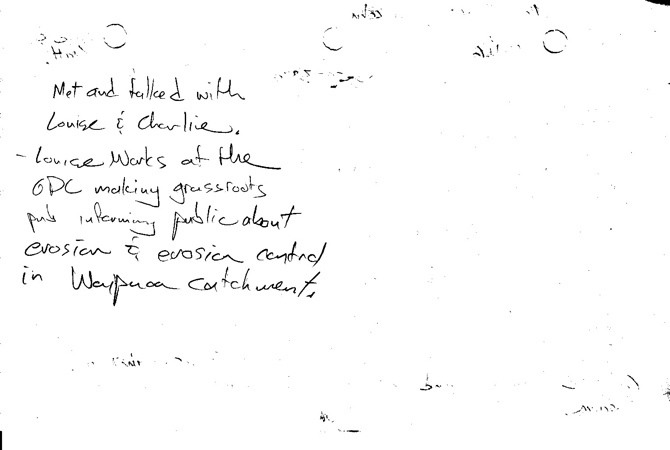 Met and talked with
Louise & Charlie.
- Louise Works at the
GDC making grassroots
pub informing public about
erosion & erosion control
in Waipaoa Catchment.